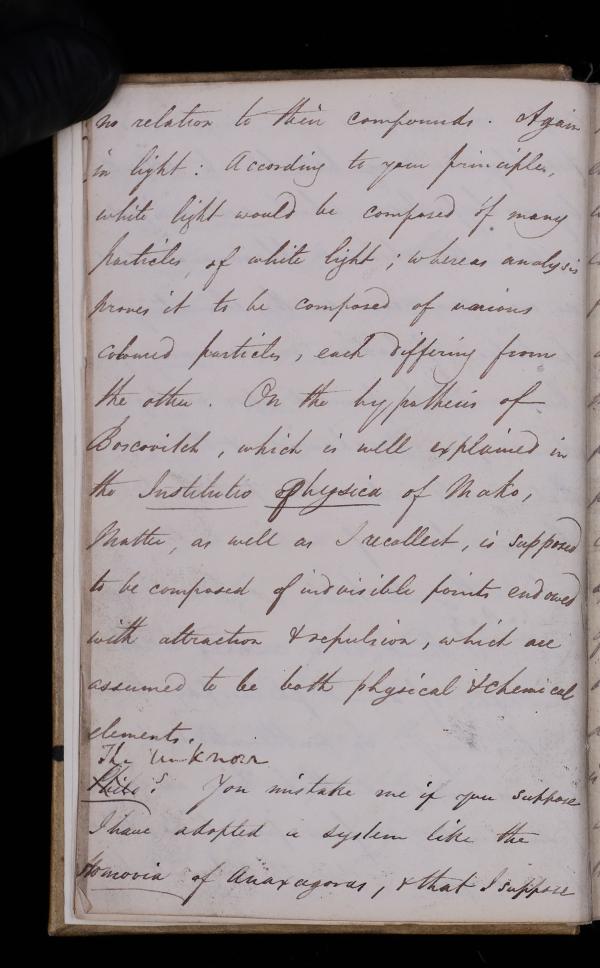 no relation to their compounds. Again
in light: According to your principles,
white light would be composed of many
particles of white light; whereas analysis
proves it to be composed of various
coloured particles, each differing from
the other. On the hypothesis of
Boscovitch, which is well explained in
the Institutio Physica of Mako,
Matter, as well as I recollect, is supposed
to be composed of indivisible points endowed
with attraction & repulsion, which are
assumed to be both physical & chemical
elements.
The Unknown
Philo: You mistake me if you suppose
I have adopted a system like the
Homoia of Anaxagoras, & that I suppose